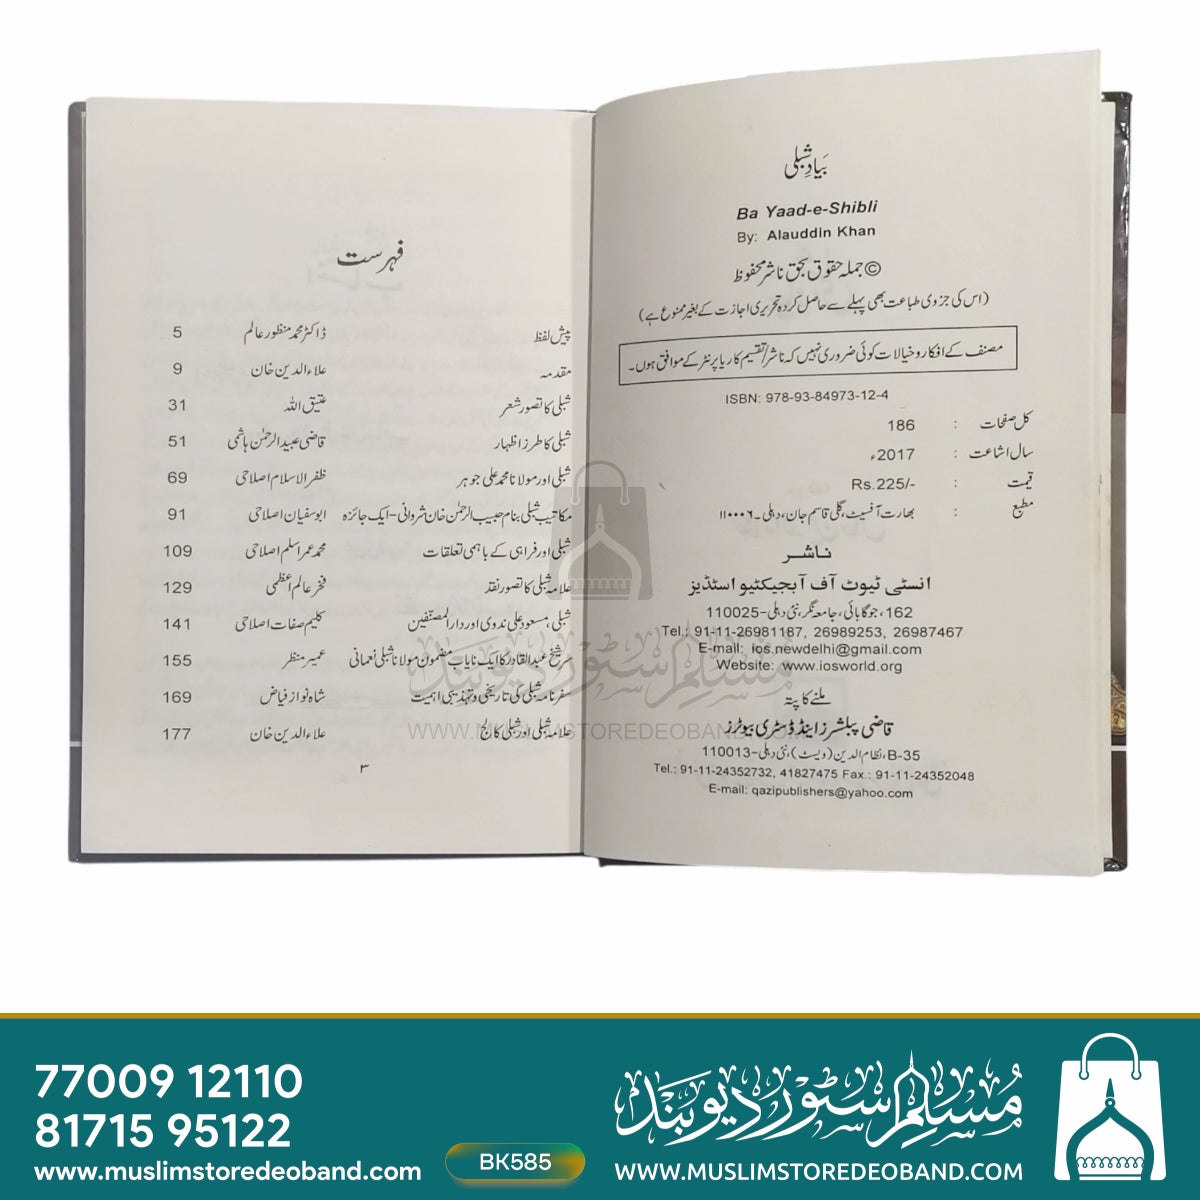 بَیادِ شبلی
Ba Yaad-e-Shibli
By: Alauddin Khan
© جملہ حقوق بحق ناشر محفوظ
(اس کی جزوی طباعت بھی پہلے سے حاصل کردہ تحریری اجازت کے بغیر ممنوع ہے)
مصنف کے افکار و خیالات کوئی ضروری نہیں کہ ناشر/تقسیم کار یا پرنٹر کے موافق ہوں۔
ISBN: 978-93-84973-12-4
کل صفحات : 186
سال اشاعت : 2017ء
قیمت : Rs.225/-
مطبع : بھارت آفسیٹ، گلی قاسم جان، دہلی۔۱۱۰۰۰۶
ناشر
انسٹی ٹیوٹ آف آبجیکٹیو اسٹڈیز
162، جوگابائی، جامعہ نگر، نئی دہلی-110025
Tel.: 91-11-26981187, 26989253, 26987467
E-mail: ios.newdelhi@gmail.com
Website: www.iosworld.org
ملنے کا پتہ
قاضی پبلشرز اینڈ ڈسٹری بیوٹرز
B-35، نظام الدین (ویسٹ)، نئی دہلی-110013
Tel.: 91-11-24352732, 41827475 Fax.: 91-11-24352048
E-mail: qazipublishers@yahoo.com
فہرست
پیش لفظ ڈاکٹر محمد منظور عالم 5
مقدمہ علاءالدین خان 9
شبلی کا تصور شعر عتیق اللہ 31
شبلی کا طرز اظہار قاضی عبید الرحمٰن ہاشمی 51
شبلی اور مولانا محمد علی جوہر ظفر الاسلام اصلاحی 69
مکاتیب شبلی بنام حبیب الرحمٰن خان شروانی-ایک جائزہ ابوسفیان اصلاحی 91
شبلی اور فراہی کے باہمی تعلقات محمد عمر اسلم اصلاحی 109
علامہ شبلی کا تصور نقد فخر عالم اعظمی 129
شبلی، مسعود علی ندوی اور دارالمصنّفین کلیم صفات اصلاحی 141
سر شیخ عبدالقادر کا ایک نایاب مضمون مولانا شبلی نعمانی عمیر منظر 155
سفرنامہ شبلی کی تاریخی و تہذیبی اہمیت شاہ نواز فیاض 169
علامہ شبلی اور شبلی کالج علاءالدین خان 177
۳
مسلم سٹور دیوبند
WWW.MUSLIMSTOREDEOBAND.COM
77009 12110
81715 95122
www.muslimstoredeoband.com
BK585
مسلم سٹور دیوبند
WWW.MUSLIMSTOREDEOBAND.COM